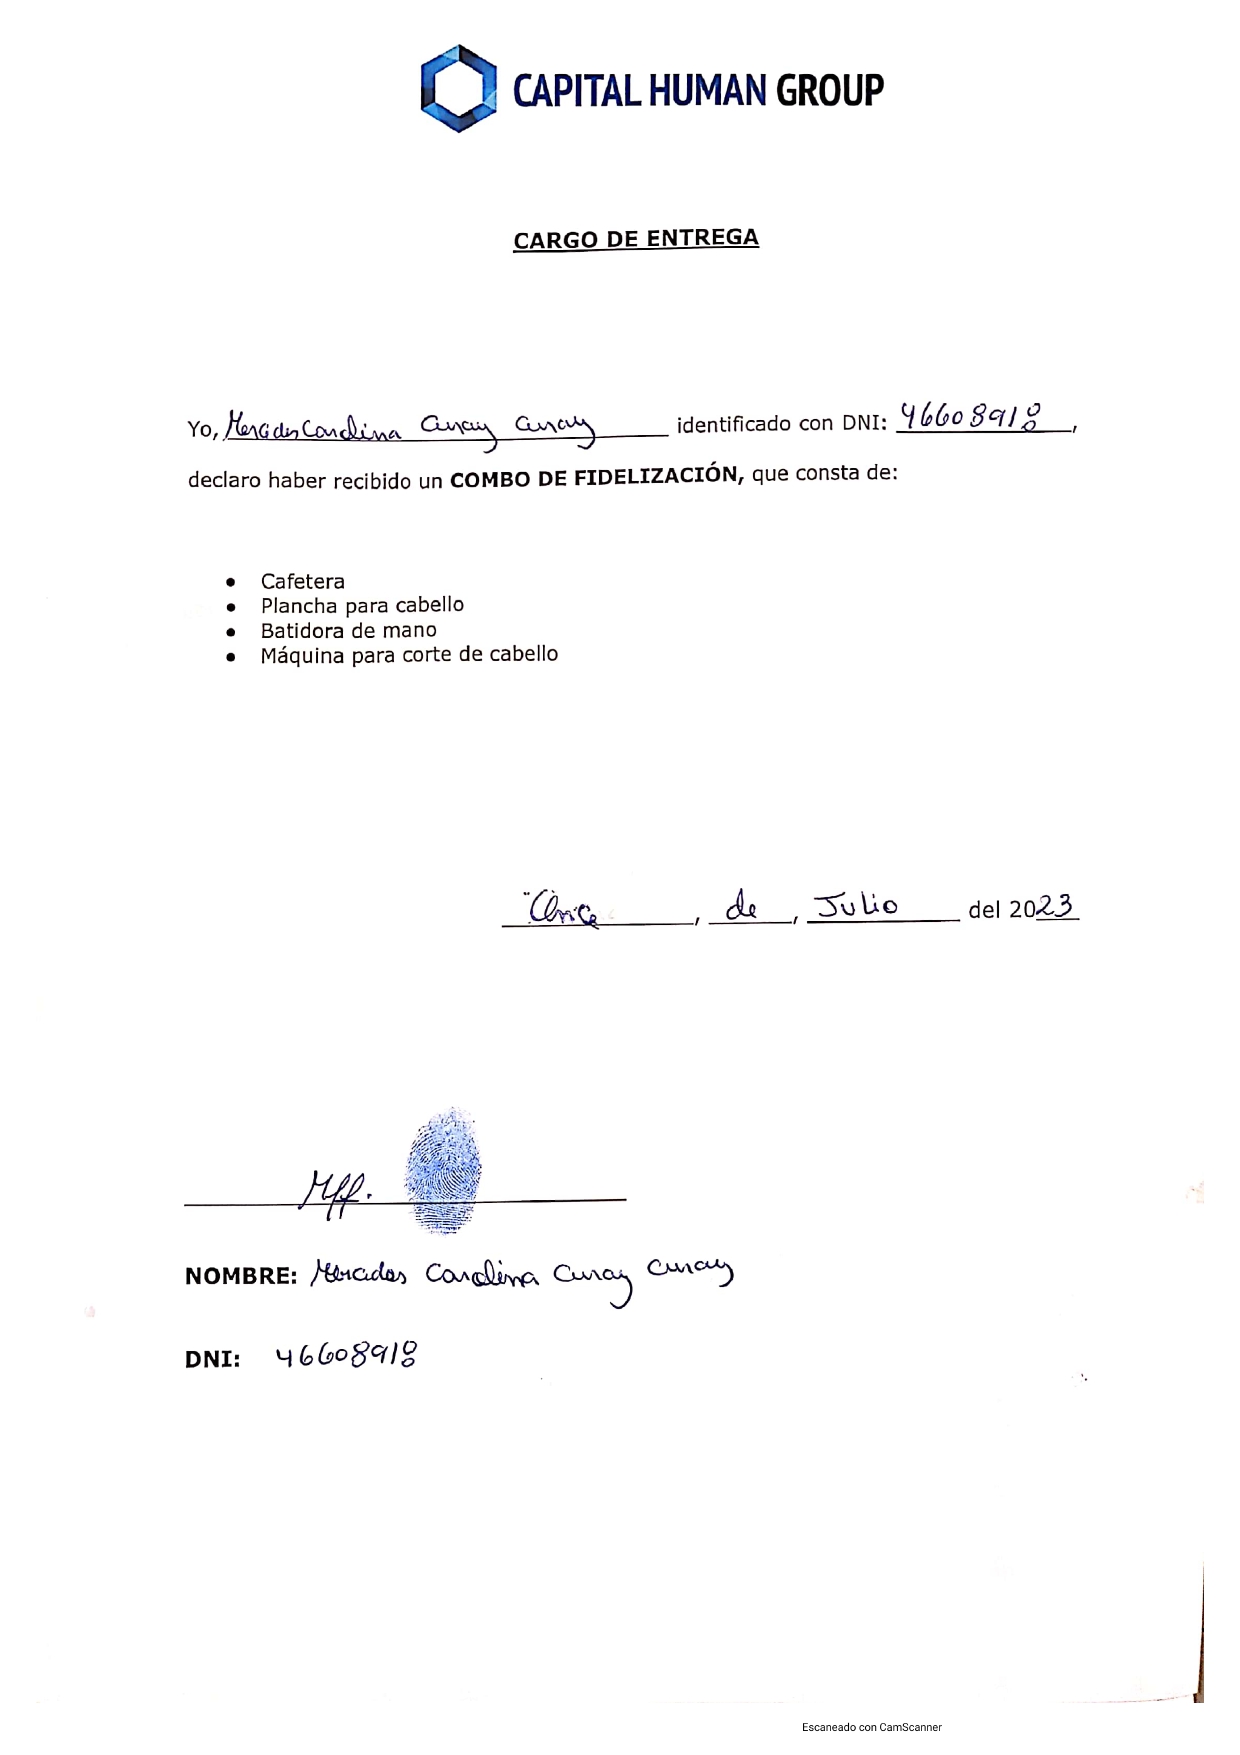 CAPITAL HUMAN GROUP
CARGO DE ENTREGA
Yo, Mercedes Carolina Curay Curay identificado con DNI: 46608918,
declaro haber recibido un COMBO DE FIDELIZACIÓN, que consta de:
• Cafetera
• Plancha para cabello
• Batidora de mano
• Máquina para corte de cabello
Once, de, Julio del 2023
NOMBRE: Mercedes Carolina Curay Curay
DNI: 46608918
Escaneado con CamScanner